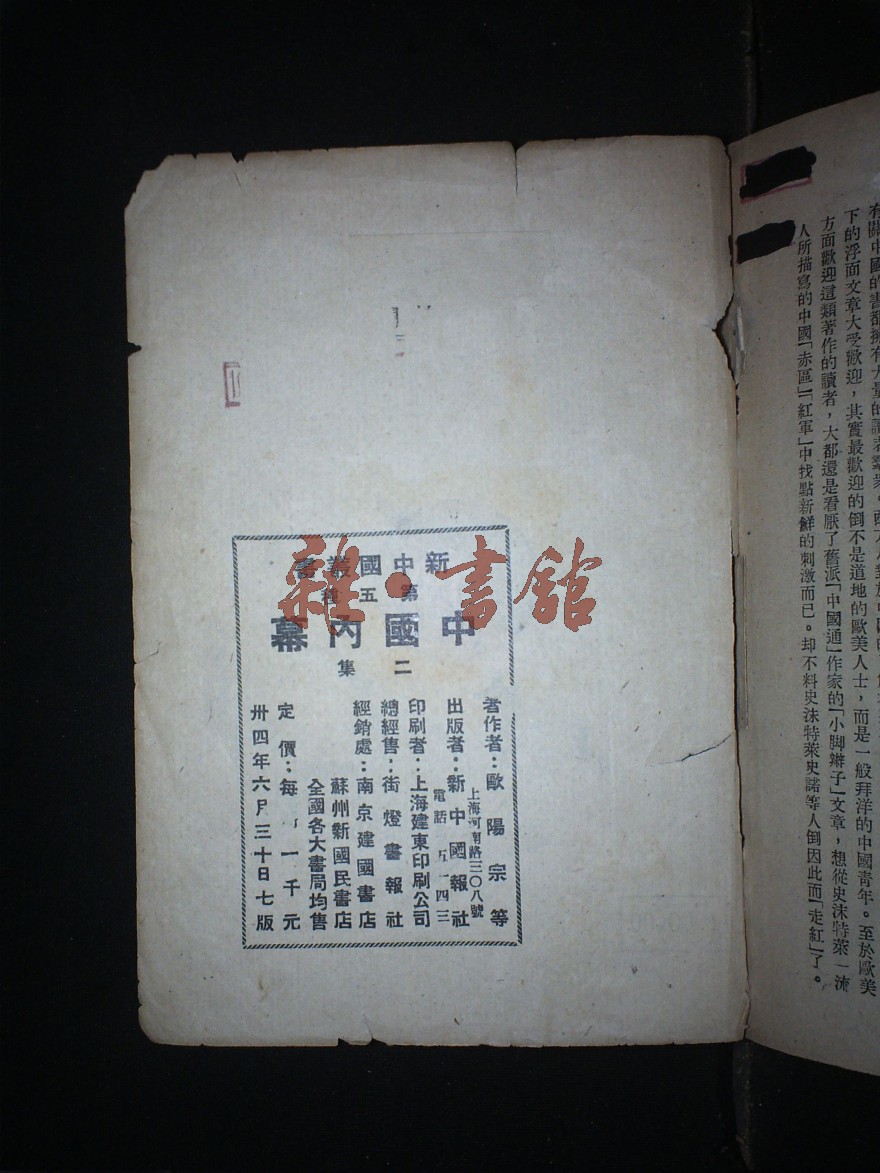 有關中國的書都擁有大量的讀者羣衆。
下的浮面文章大受歡迎，其實最歡迎的倒不是道地的歐美人士，而是一般拜洋的中國青年。至於歐美
方面歡迎這類著作的讀者，大都還是看厭了舊派「中國通」作家的「小脚辮子」文章，想從史沫特萊一流
人所描寫的中國「赤區」「紅軍」中找點新鮮的刺激而已。却不料史沫特萊史諾等人倒因此而「走紅」了。
新中國叢書
第五種
中國內幕
二集
著作者：歐陽宗等
上海河南路三〇八號
出版者：新中國報社
電話
印刷者：上海建東印刷公司
總經售：街燈書報社
經銷處：南京建國書店
蘇州新國民書店
全國各大書局均售
定價：每 一千元
卅四年六月三十日七版
雜·書館